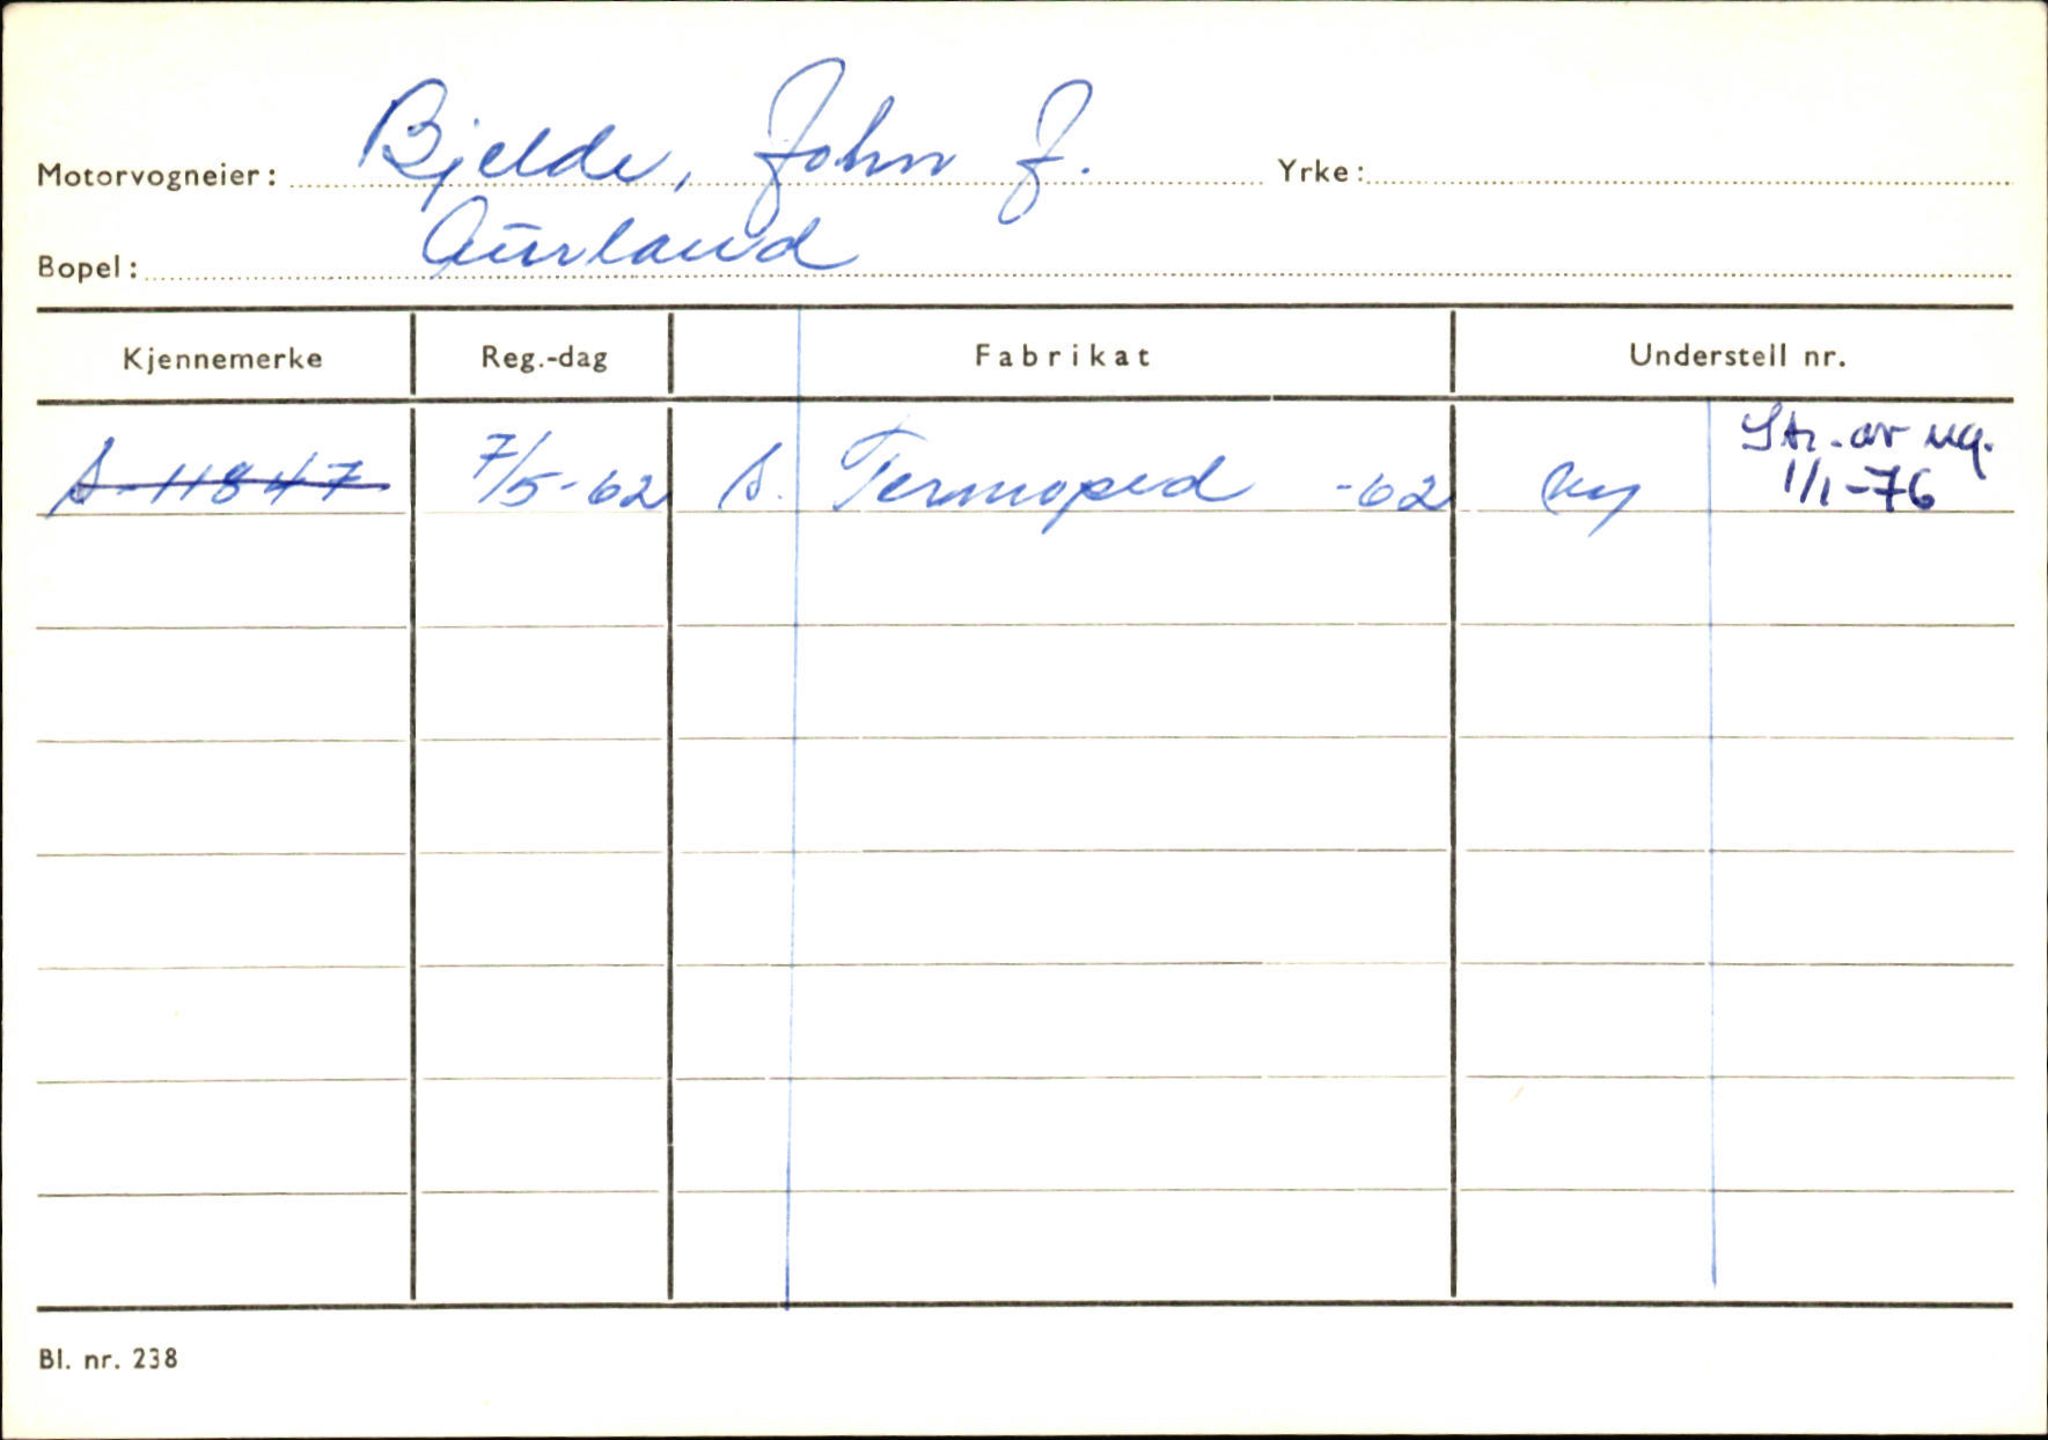 Motorvogneier: Bjelde, John J. Yrke:
Bopel: Aurland
Kjennemerke Reg.-dag Fabrikat Understell nr.
S-11847 7/5-62 S. Termoped -62 Ny Str. av reg. 1/1-76
Bl. nr. 238